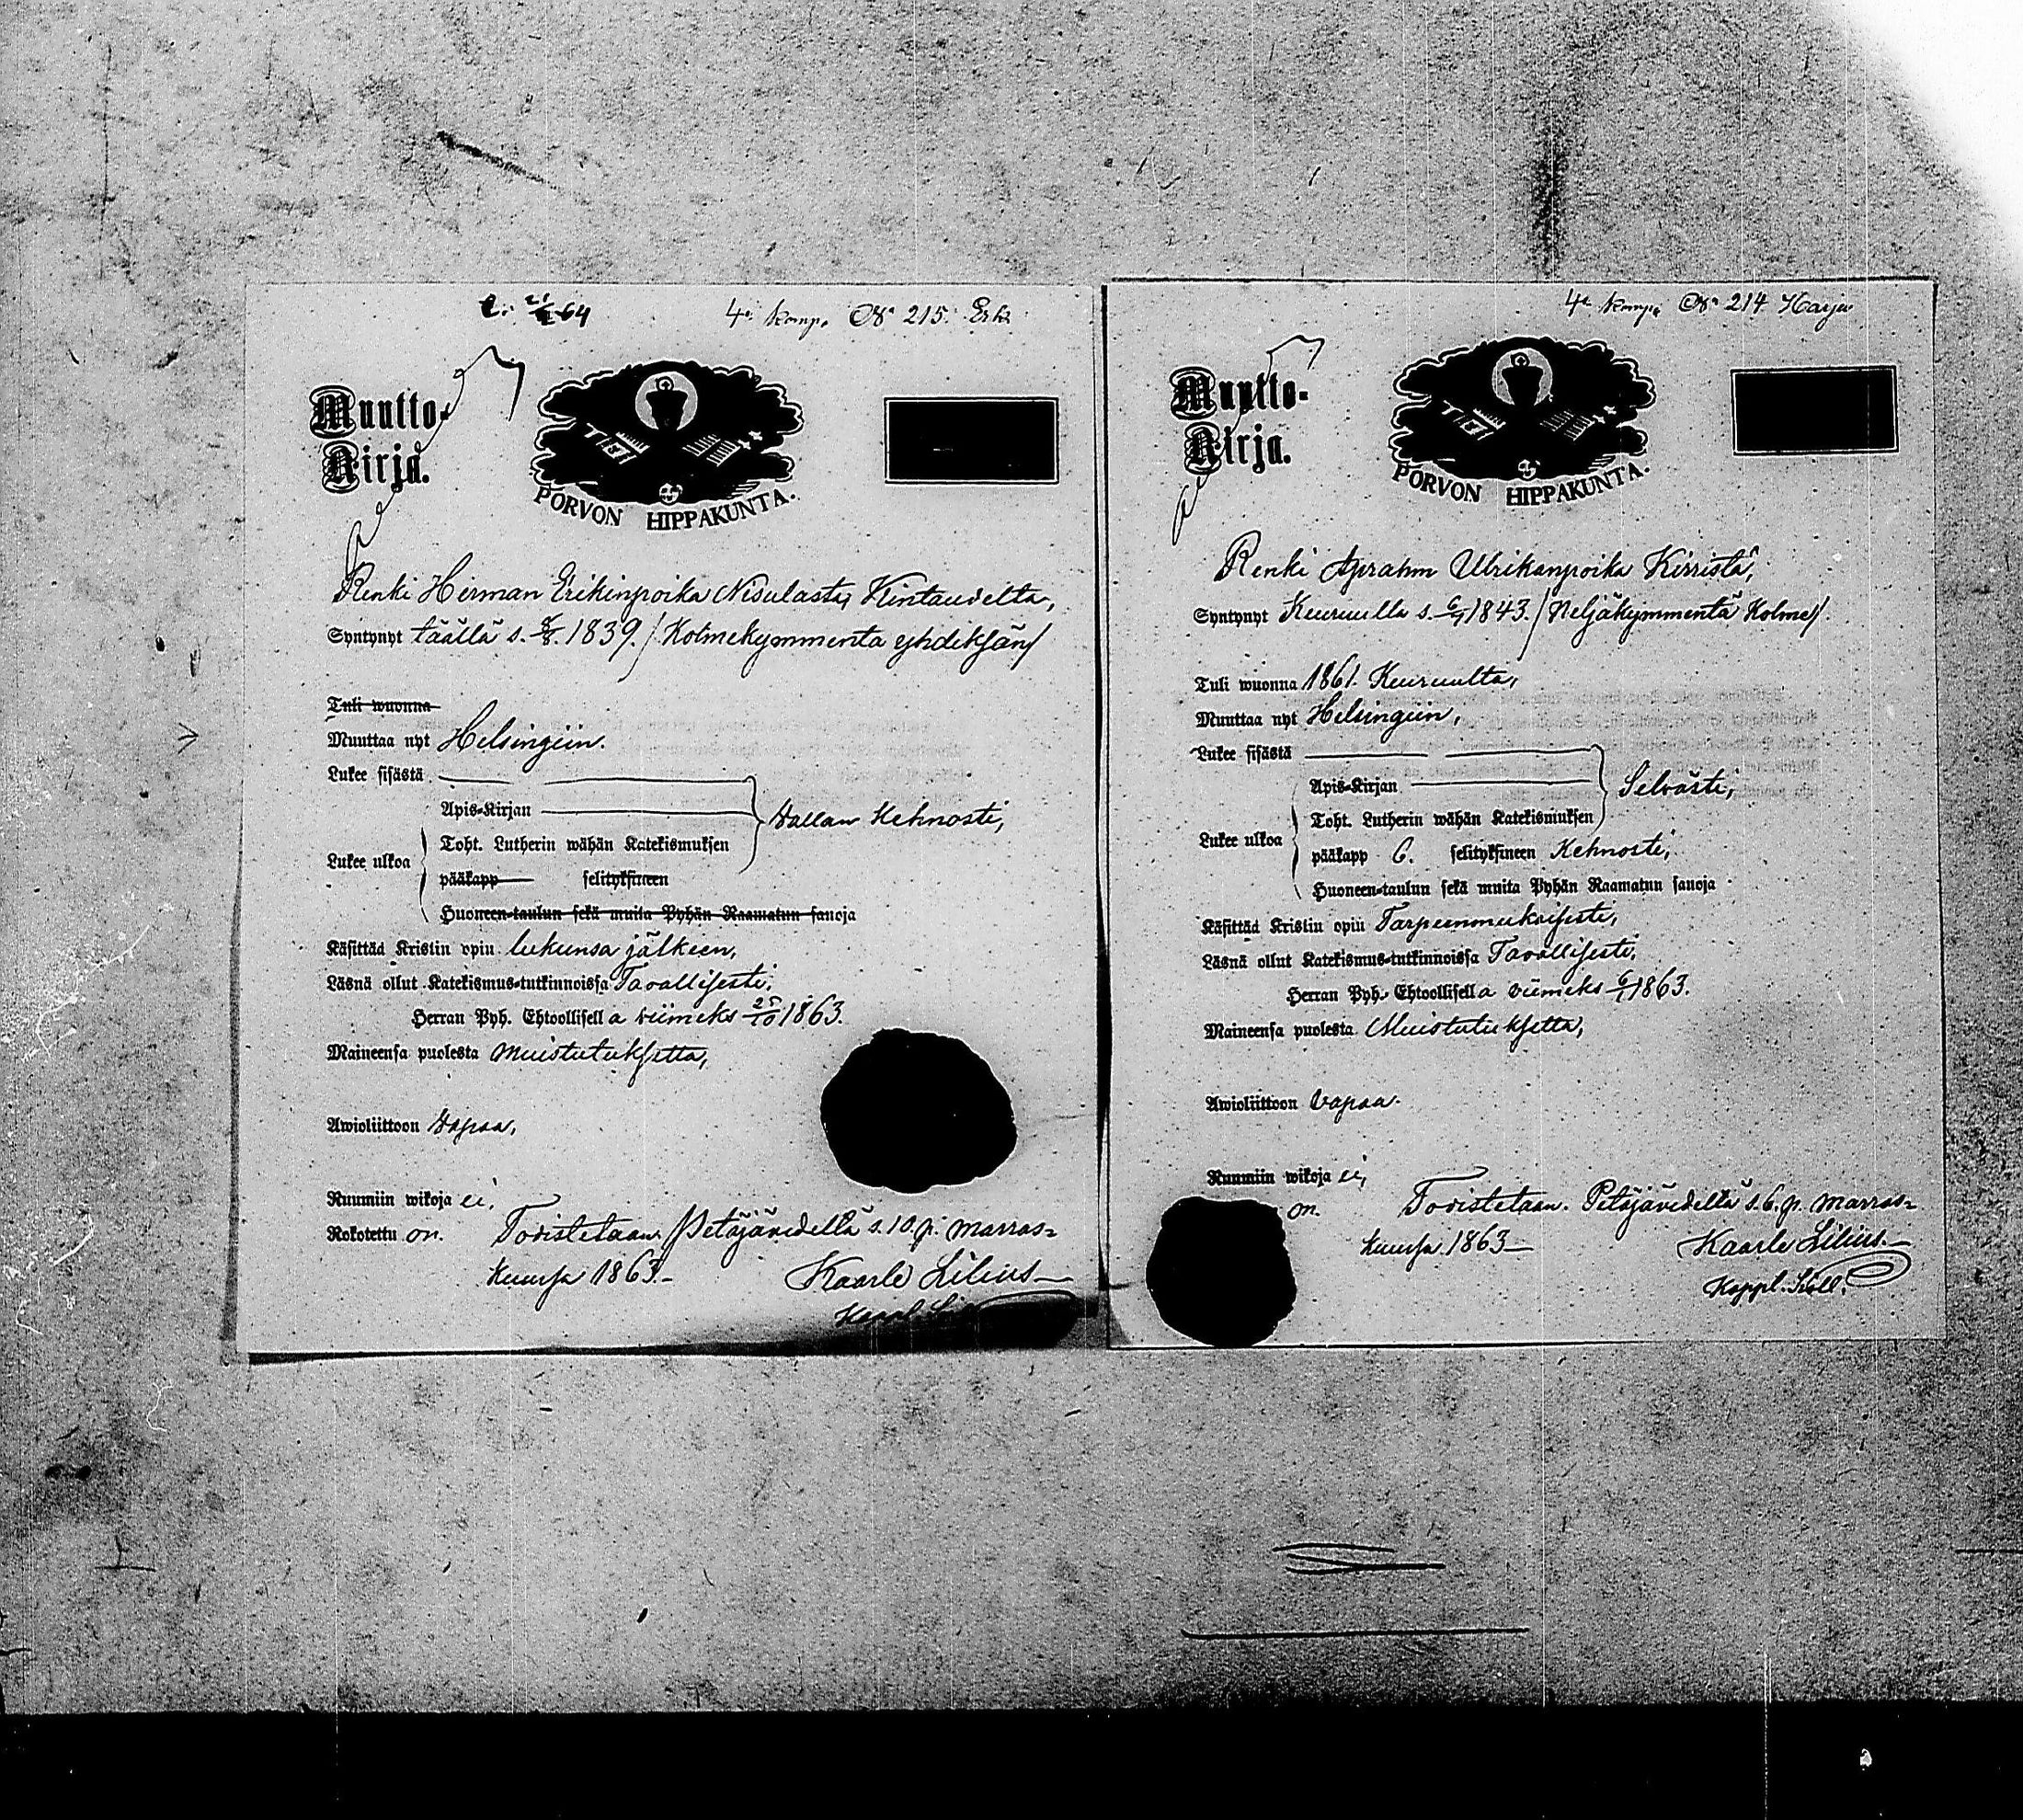 21/2 64
4e komp. No 215. Erki
Muutto-
Kirja.
PORVON HIPPAKUNTA.
Renki Herman Erikinpoika Nisulasta, Kintaudelta,
Syntynyt täällä s. 8/8. 1839. / Kolmekymmentä yhdeksän /
Tuli wuonna
Muuttaa nyt Helsingiin.
Lukee sisästä
Apis-Kirjan
Vallan Kehnosti,
Toht. Lutherin wähän Katekismuksen
Lukee ulkoa
pääkapp selityksineen
Huoneen-taulun sekä muita Pyhän Raamatun sanoja
Käsittää Kristin opin lukunsa jälkeen,
Läsnä ollut Katekismus-tutkinnoissa Tavallisesti,
Herran Pyh. Ehtoollisella viimeks 25/10 1863.
Maineensa puolesta muistutuksetta,
Awioliittoon Vapaa,
Ruumiin wikoja ei,
Rokotettu on.
Todistetaan. Petäjävedellä s. 10. p. marras-
kuussa 1863.
Kaarle Lilius
4e komp. No 214 Harju
Muutto-
Kirja.
PORVON HIPPAKUNTA.
Renki Aprahm Ulrikanpoika Kirristä,
Syntynyt Keuruulla s. 1843. / Neljäkymmentä Kolme /.
Tuli wuonna 1861. Keuruulta,
Muuttaa nyt Helsingiin,
Lukee sisästä
Apis-Kirjan
Selvästi,
Toht. Lutherin wähän Katekismuksen
Lukee ulkoa
pääkapp 6. selityksineen Kehnosti,
Huoneen-taulun sekä muita Pyhän Raamatun sanoja
Käsittää Kristin opin Tarpeenmukaisesti,
Läsnä ollut Katekismus-tutkinnoissa Tavallisesti,
Herran Pyh. Ehtoollisella viimeks 1863.
Maineensa puolesta Muistutuksetta,
Awioliittoon Vapaa.
Ruumiin wikoja ei,
on.
Todistetaan. Petäjävedellä s. 6. p. marras-
kuussa 1863
Kaarle Lilius.
Kappl.